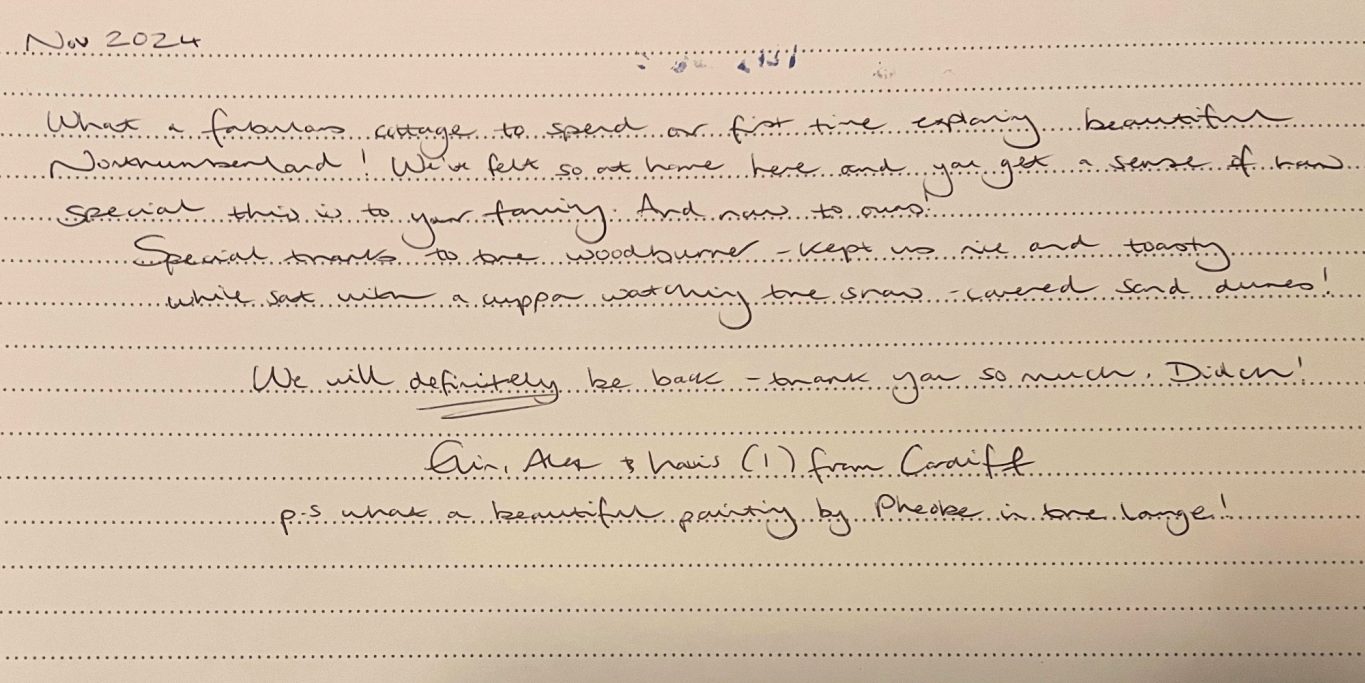 Nov 2024
What a fabulous cottage to spend our first time exploring beautiful
Northumberland! We've felt so at home here and you get a sense of how
special this is to your family. And now to ours!
Special thanks to the woodburner - kept us nice and toasty
while sat with a cuppa watching the snow-covered sand dunes!
We will definitely be back - thank you so much. Diolch!
Alex & (1) from Cardiff
p.s what a beautiful painting by Pheobe in the lounge!